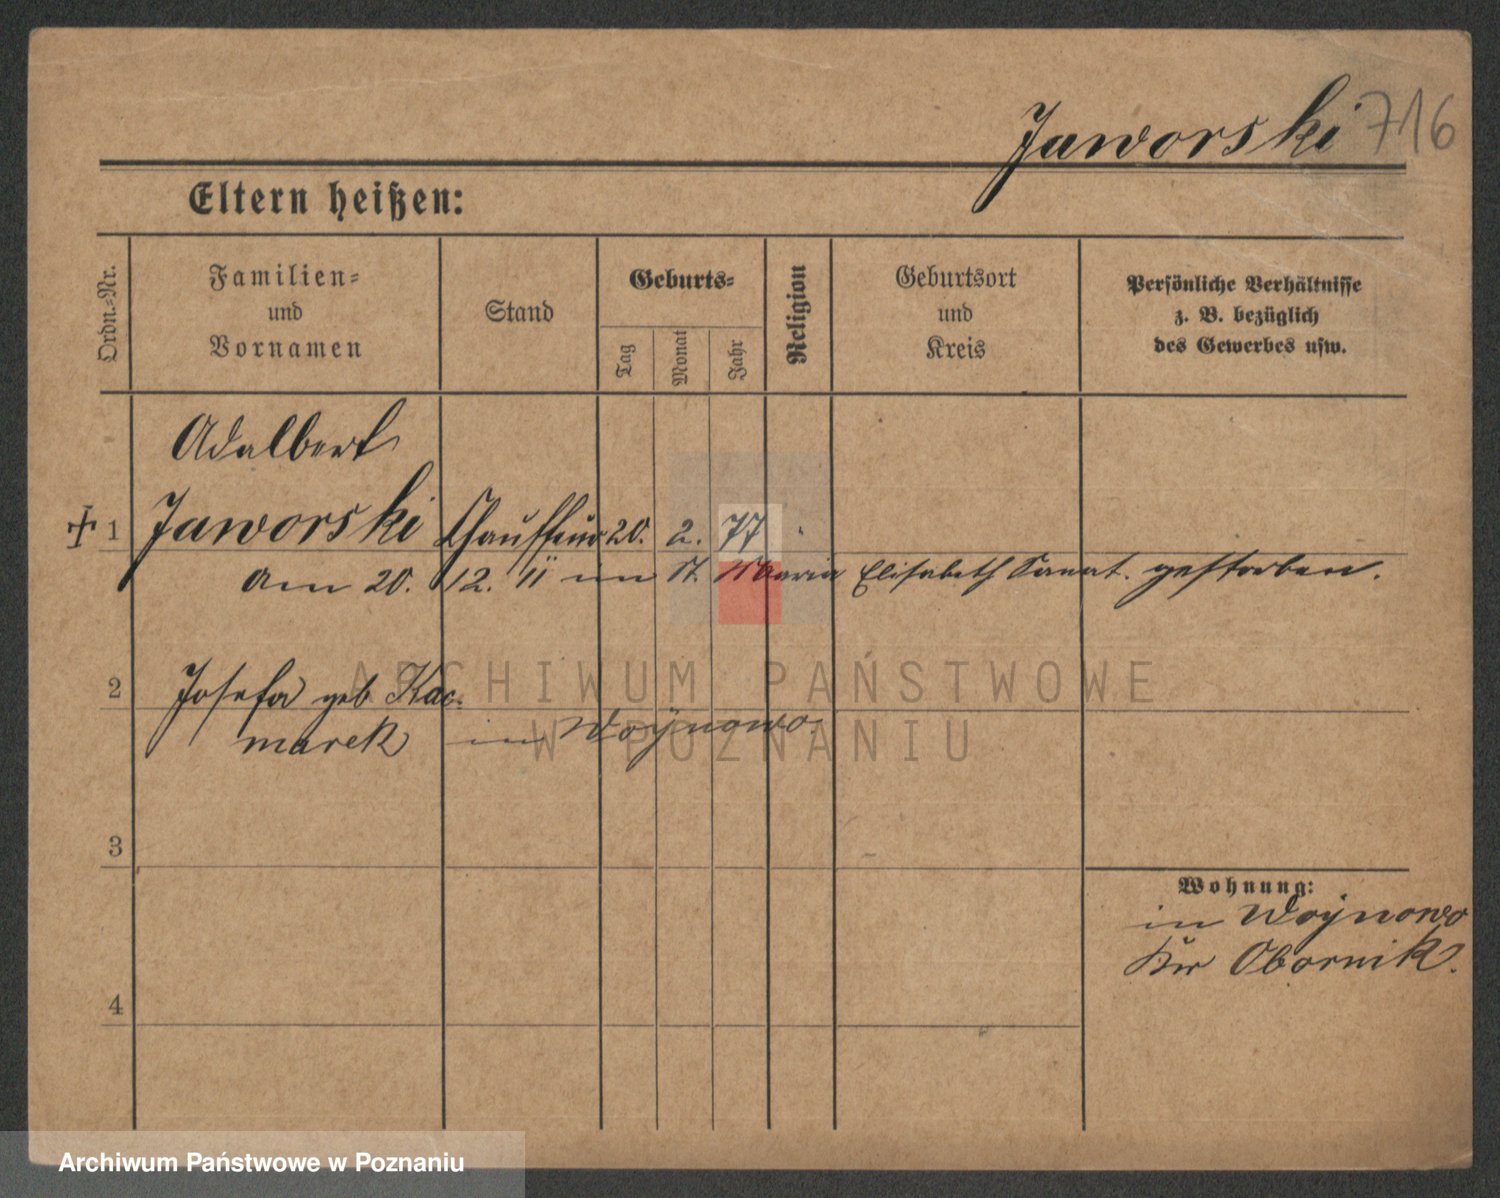 Jaworski 716
Eltern heißen:
Ordn.-Nr.
Familien-
und
Vornamen
Stand
Geburts-
Tag
Monat
Jahr
Religion
Geburtsort
und
Kreis
Persönliche Verhältnisse
z. B. bezüglich
des Gewerbes usw.
Adalbert
1 Jaworski Chauffeur 20. 2. 77
am 20. 12. 11 im St. Maria Elisabeth Sanat. gestorben.
2 Josefa geb Kac-
marek in Woynowo.
3
Wohnung:
in Woynowo
Kr Obornik.
4
ARCHIWUM PAŃSTWOWE
W POZNANIU
Archiwum Państwowe w Poznaniu